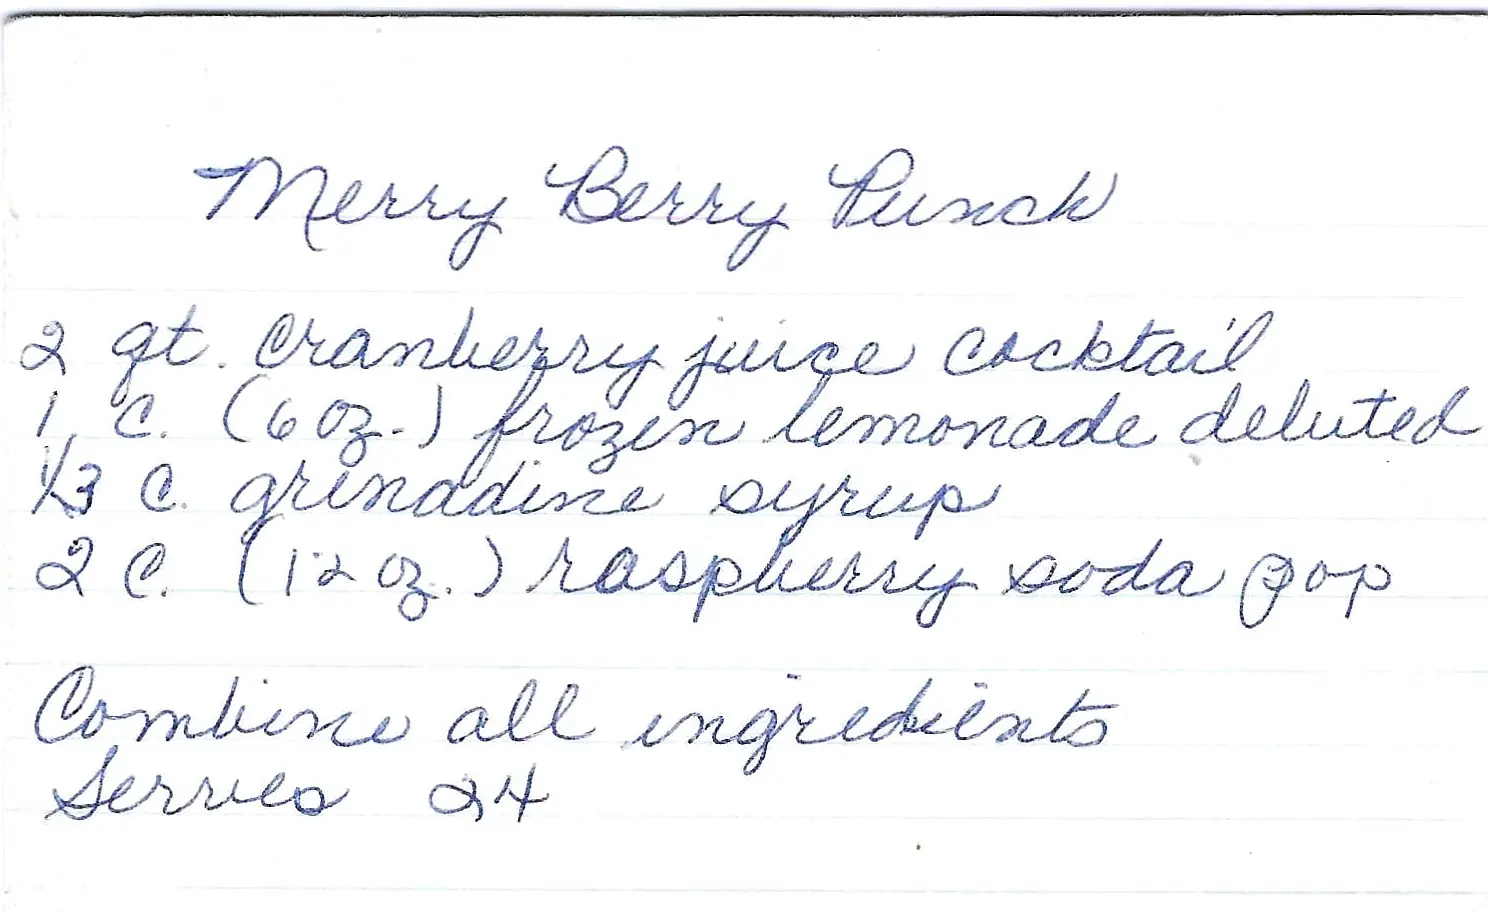 Merry Berry Punch
2 qt. Cranberry juice cocktail
1 C. (6 oz.) frozen lemonade deluted
1/3 C. grenadine syrup
2 C. (12 oz.) raspberry soda pop
Combine all ingredients
Serves 24